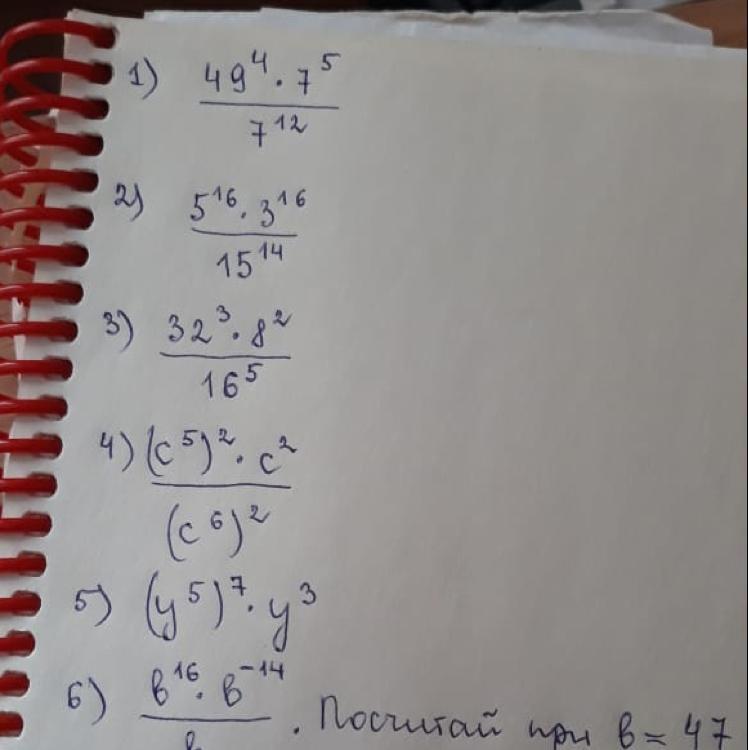 1) 49⁴ · 7⁵
7¹²
2) 5¹⁶ · 3¹⁶
15¹⁴
3) 32³ · 8²
16⁵
4) (c⁵)² · c²
(c⁶)²
5) (y⁵)⁷ · y³
6) в¹⁶ · в⁻¹⁴
. Посчитай при в = 47